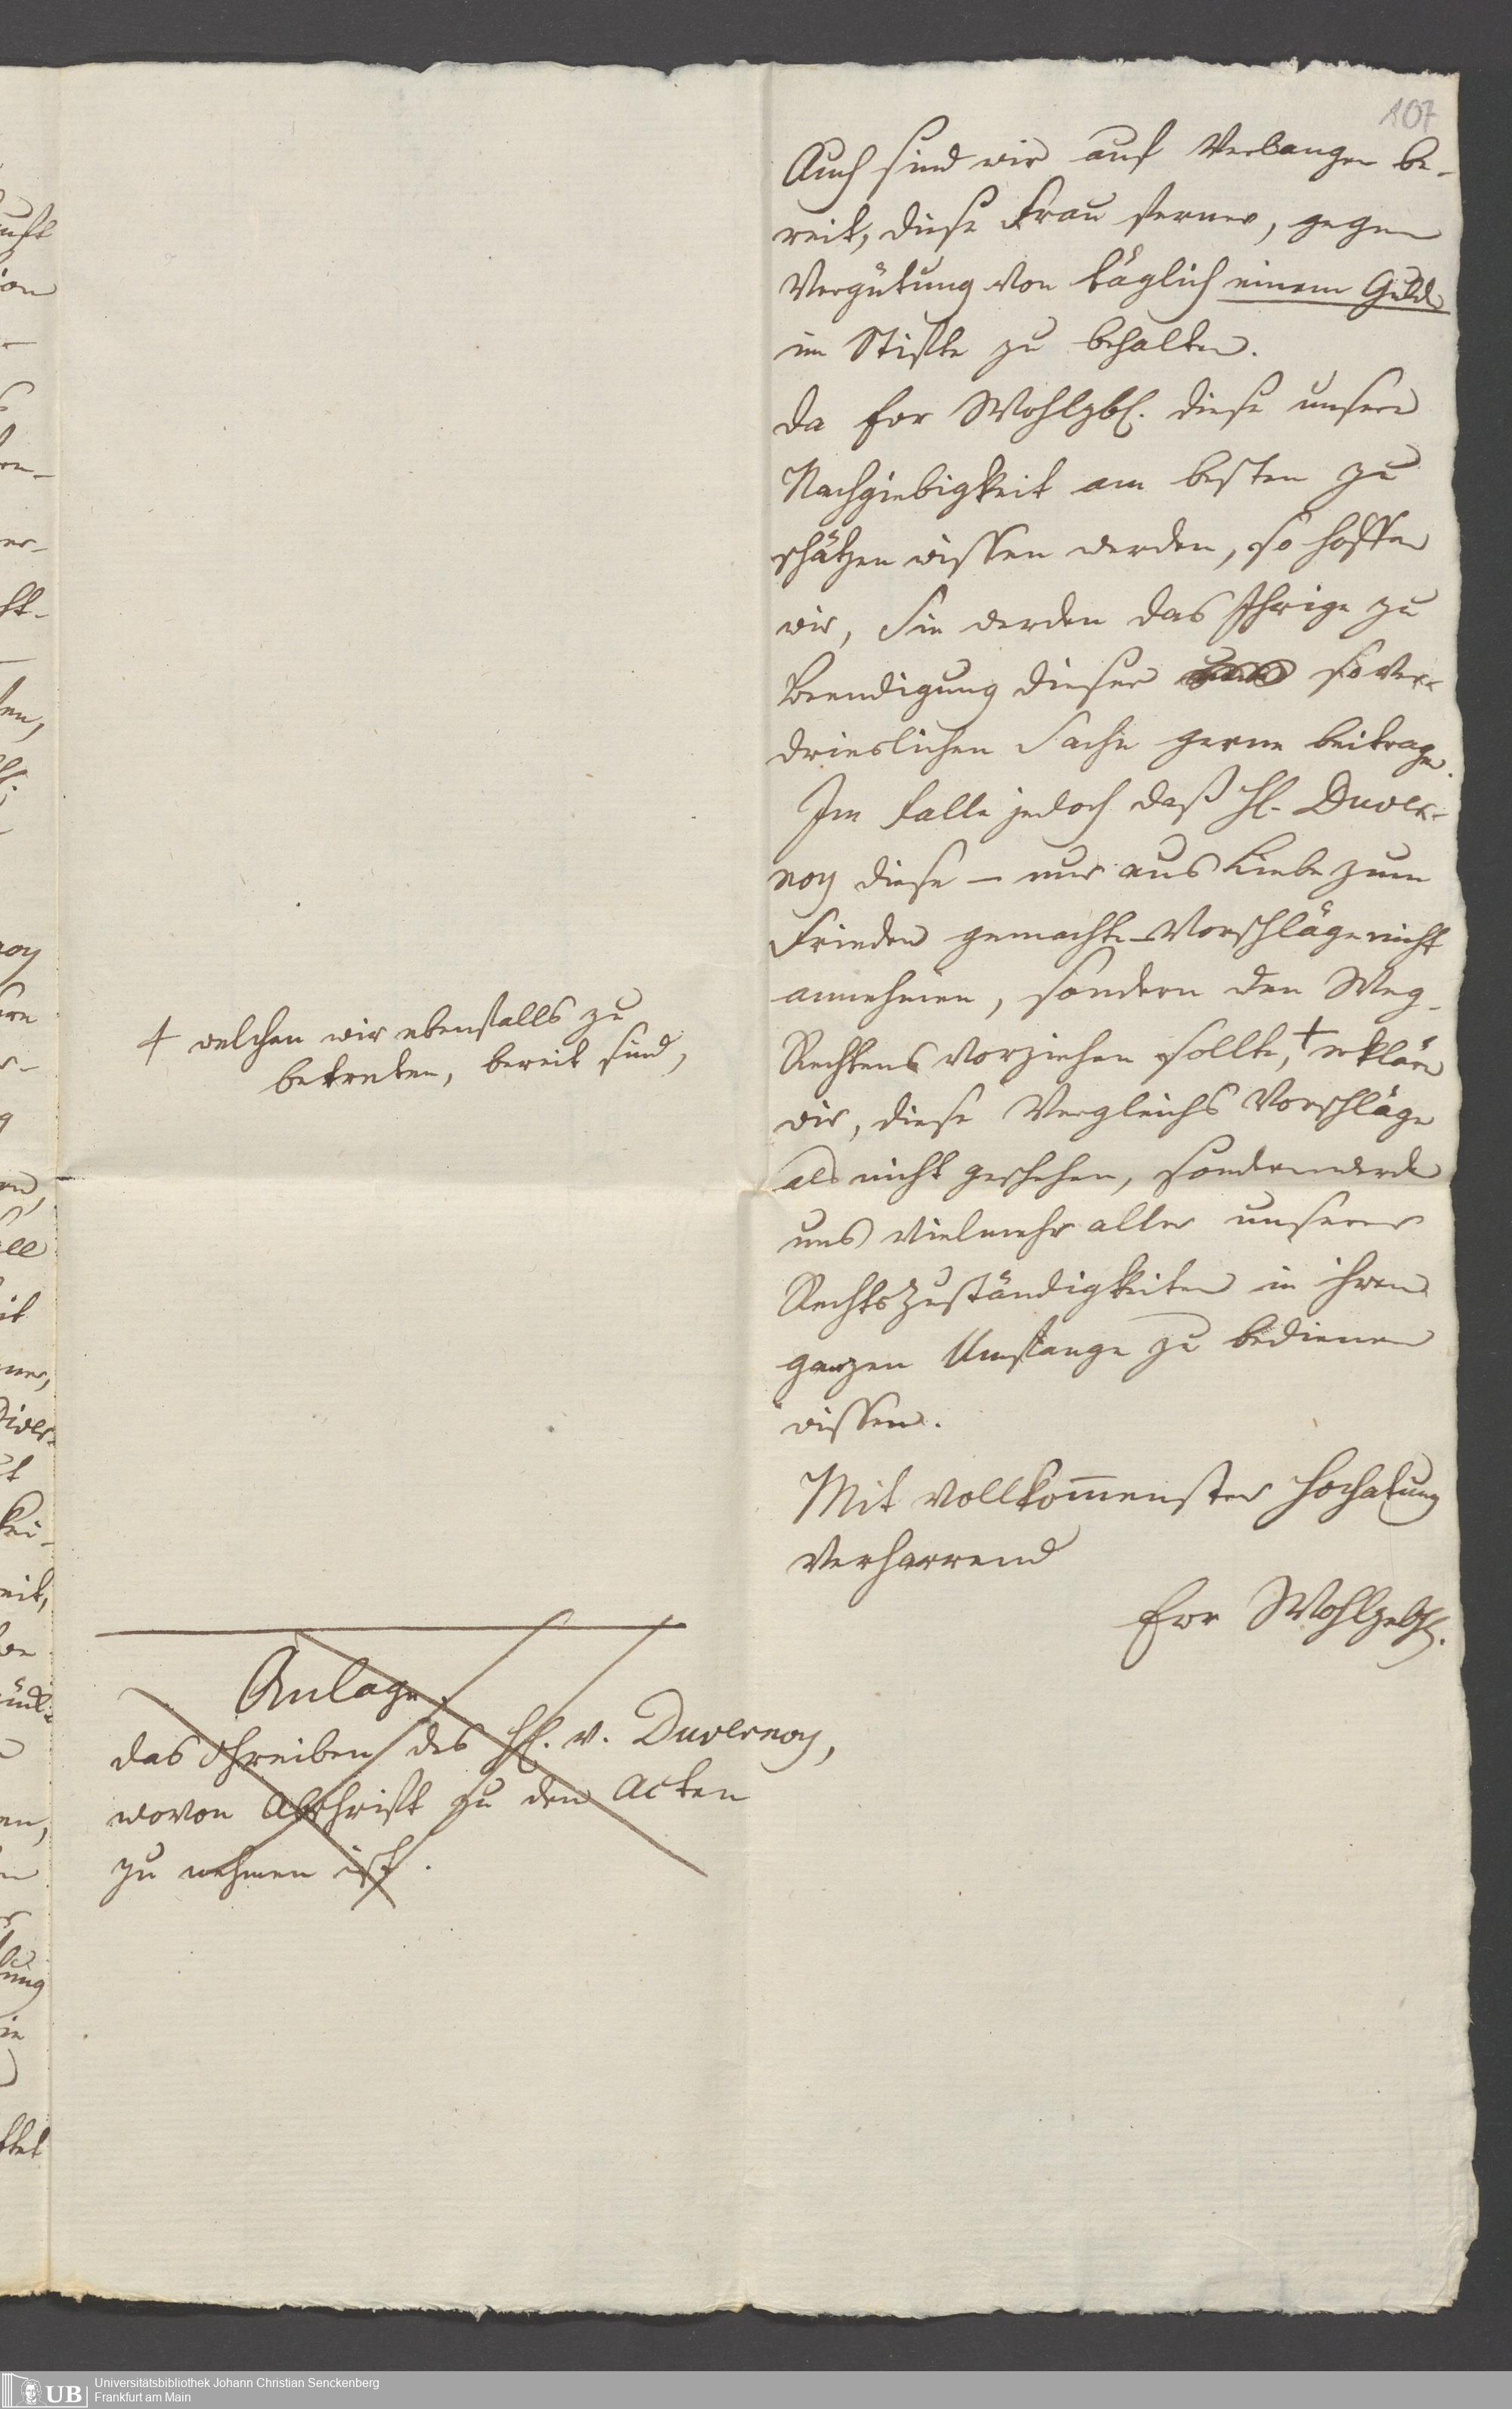 107
Auch sind wir auf Verlangen be-
reit, diese Frau ferner, gegen
Vergütung von täglich einem Guld
im Stifte zu behalten.
Da Ewr Wohlgb. diese unsere
Nachgiebigkeit am besten zu
schätzen wissen werden, so hoffen
wir, Sie werden das Ihrige zu
Beendigung dieser so ver-
drieslichen Sache gerne beitragen.
Im Falle jedoch daß H. Duver-
noy diese – nur aus Liebe zum
Frieden gemachte – Vorschläge nicht
annehmen, sondern den Weg
Rechtens vorziehen sollte, + erklären
wir, diese Vergleichs Vorschläge
als nicht geschehen, sondern werden
uns vielmehr aller unserer
Rechtszuständigkeiten in ihrem
ganzen Umfange zu bedienen
wissen.
Mit vollkom̅enster Hochachtung
verharrend
Ewr Wohlgeb.
+ welchen wir ebenfalls zu
betreten, bereit sind,
Anlage.
das Schreiben des H. v. Duvernoy,
wovon Abschrift zu den Acten
zu nehmen ist.
UB
Universitätsbibliothek Johann Christian Senckenberg
Frankfurt am Main